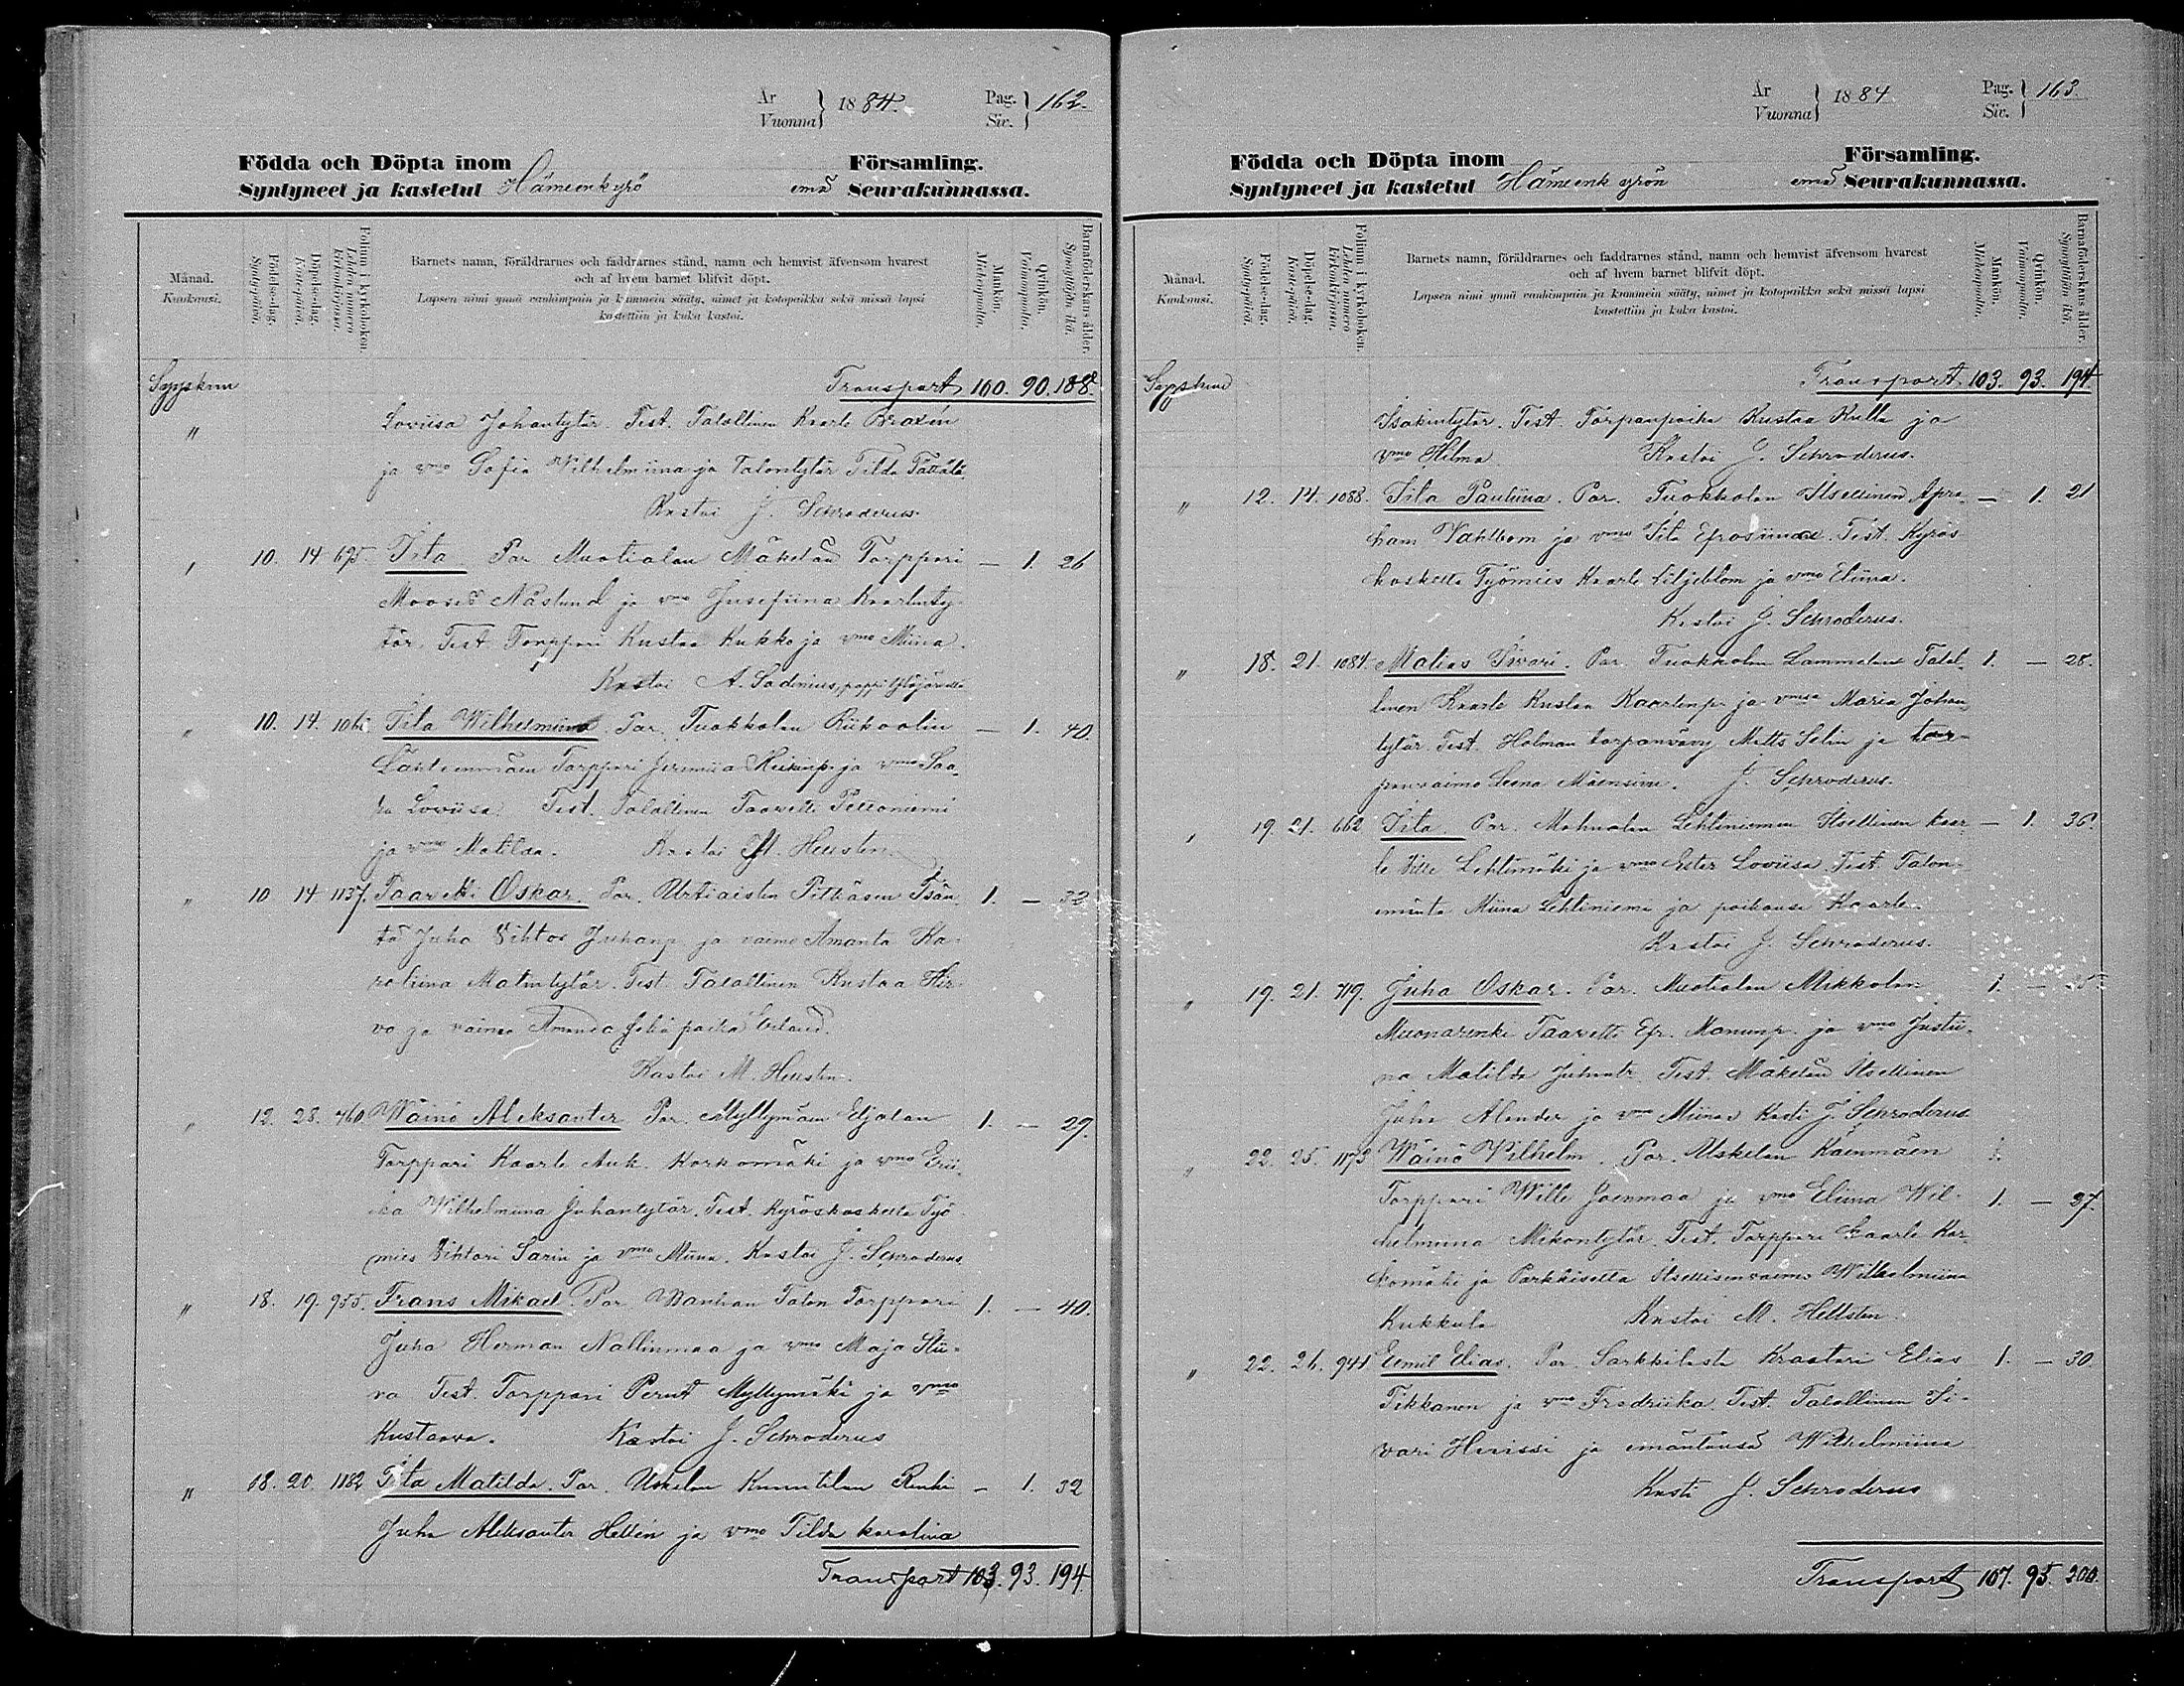 År
Vuonna } 1884. Pag.
Siv. } 162.
Födda och Döpta inom Församling.
Syntyneet ja kastetut Hämeenkyrö emä Seurakunnassa.
Månad.
Kuukausi.
Födelse-dag.
Syntypäivä.
Döpelse-dag.
Kastepäivä.
Folium i kyrkoboken.
Lehden numero
kirkonkirjassa.
Barnets namn, föräldrarnes och faddrarnes stånd, namn och hemvist äfvensom hvarest
och af hvem barnet blifvit döpt.
Lapsen nimi ynnä vanhimpain ja kummein sääty, nimet ja kotopaikka sekä missä lapsi
kastettiin ja kuka kastoi.
Mankön.
Miehenpuolia.
Qvinkön.
Vaimonpuolia.
Barnaföderskans ålder.
Synnyttäjän ikä.
Syyskuu Transport 100. 90. 188.
" Loviisa Johantytär. Test. Talollinen Kaarle Braxén
ja vmo Sofia Wilhelmiina ja Talontytär Tilda Tättälä.
Kastoi J. Schroderus.
, 10. 14 695. Iita Par. Muotialan Mäkelän Torppari — 1. 26
Mooses Näslund ja vmo Jusefiina Kaarlenty-
tär, Test. Torppari Kustaa Kukko ja vmo Miina.
Kastoi A. Sadenius, pappi Ylöjärveltä
" 10. 14. Iita Wilhelmiina. Par. Tuokkolan Riikoolin — 1. 40.
Torppari Jeremiia Heikinp. ja vmo Saa-
ra Loviisa. Test. Talollinen Taavetti Peltoniemi
ja vmo Matilda. Kastoi M. Hellsten.
" 10 14 1137. Taavetti Oskar. Par. Urtiaisten Pitkäsen Isän- 1. — 32
tä Juha Vihtor Juhanp. ja vaimo Amanta Ka-
roliina Matintytär. Test. Talollinen Kustaa Hir-
vo ja vaimo Amanda
Kastoi M. Hellsten.
" 12. 28. 460. Wäinö Aleksanter Par. Myllymäen Eljalan 1. — 29.
Torppari Kaarle Auk. Korkomäki ja vmo Erii-
ka Wilhelmiina Juhantytär. Test. Kyröskoskelta Työ-
mies Vihtori Sarin ja vmo Miina. Kastoi J. Schroderus
" 18. 19. 955. Frans Mikael. Par. Wanhan Talon Torppari 1. — 40.
Juha Herman Nallinmaa ja vmo Maja Stii-
na Test. Torppari Perut Myllymäki ja vmo
Kustaava. Kastoi J. Schroderus
" 18. 20. 1182 Iita Matilda. Par. Uskelan Knuutilan Renki — 1. 32
Juha Aleksanter Hellén ja vmo Tilda Karolina
Transport 103. 93. 194
År
Vuonna } 1884 Pag.
Siv. } 163.
Födda och Döpta inom Församling.
Syntyneet ja kastetut Hämeenkyrön emä Seurakunnassa.
Månad.
Kuukausi.
Födelse-dag.
Syntypäivä.
Döpelse-dag.
Kastepäivä.
Folium i kyrkoboken.
Lehden numero
kirkonkirjassa.
Barnets namn, föräldrarnes och faddrarnes stånd, namn och hemvist äfvensom hvarest
och af hvem barnet blifvit döpt.
Lapsen nimi ynnä vanhimpain ja kummein sääty, nimet ja kotopaikka sekä missä lapsi
kastettiin ja kuka kastoi.
Mankön.
Miehenpuolia.
Qvinkön.
Vaimonpuolia.
Barnaföderskans ålder.
Synnyttäjän ikä.
Syyskuu Transport 103. 93. 194.
Isakintytär. Test. Torpanpoika Kustaa Kulla ja
vmo Hilma Kastoi J. Schroderus.
" 12. 14. 1088. Iita Pauliina. Par. Tuokkolan Itsellinen Apra- — 1. 21
ham Vahlbom ja vmo Iita Efrosiina. Test. Kyrös-
koskelta Työmies Kaarle Liljeblom ja vmo Eliina.
Kastoi J. Schroderus.
" 18. 21. 1084. Matias Iivari. Par. Tuokkolan Lammelan Talol- 1. — 28.
linen Kaarle Kustaa Kaarlenp. ja vmo Maria Johan-
tytär. Test. Holman torpanvävy Matts Selin ja tor-
panvaimo Leena Mäensivu. J. Schroderus.
, 19. 21. 662 Iita. Par. Mahnalan Lehtiniemen Itsellinen Kaar- — 1. 36.
le Ville Lehtimäki ja vmo Ester Loviisa. Test. Talon-
emäntä Miina Lehtiniemi ja poikansa Kaarle.
Kastoi J. Schroderus.
" 19. 21. 719. Juha Oskar. Par. Muotialan Mikkolan 1. —
Muonarenki Taavetti Efr. Manunp. ja vmo Justii-
na Matilda Juhantr. Test. Mäkelän Itsellinen
Juha Alander ja vmo Miina Kasti J. Schroderus
" 22. 25. 1173 Wäinö Vilhelm. Par. Uskelan Käenmäen
Torppari Wille Jaenmaa ja vmo Eliina Wil- 1. — 27.
helmiina Mikontytär. Test. Torppari Kaarle Kor-
komäki ja Parkkisetta Itsellisenvaimo Wilhelmiina
Kukkula Kastoi M. Hellsten.
" 22. 26. 941 Eemil Elias. Par. Sarkkilasta Kraatari Elias 1. — 30.
Tikkanen ja vmo Fredriika. Test. Talollinen Ii-
vari Herissi ja emäntänsä Wilhelmiina
Kasti J. Schroderus
Transport 107. 95. 200.